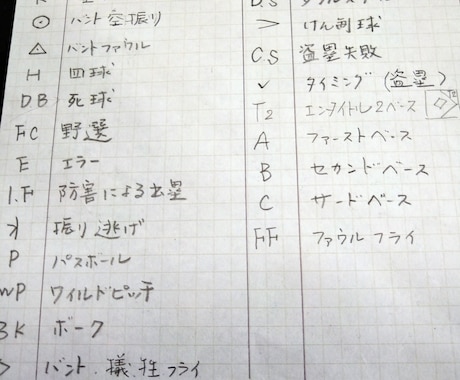 バント空振り
バントファウル
H 四球
DB 死球
FC 野選
E エラー
I.F 防害による出塁
振り逃げ
P パスボール
WP ワイルドピッチ
BK ボーク
バント.犠.牲フライ
D.S
> けん制球
C.S 盗塁失敗
✓ タイミング(盗塁)
T2 エンタイトル2ベース
A ファーストベース
B セカンドベース
C サードベース
FF ファウルフライ